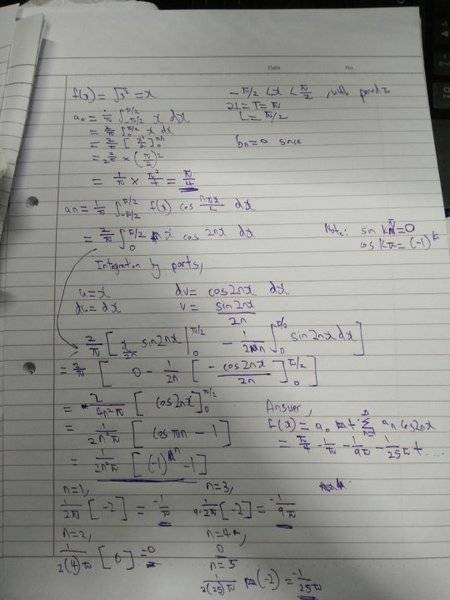 Date No.
f(x) = √x² = x
-π/2 < x < π/2 , with period π
2L = T = π
L = π/2
a₀ = 1/π ∫_{-π/2}^{π/2} x dx
= 2/π ∫_0^{π/2} x dx
= 2/π [x²/2]_0^{π/2}
bn = 0 since
= 1/π × (π/2)²
= 1/π × π²/4 = π/4
an = 1/π ∫_{-π/2}^{π/2} f(x) cos nπx/L dx
= 2/π ∫_0^{π/2} x cos 2nx dx
Note: sin kπ = 0
cos kπ = (-1)^k
Integration by parts,
u = x dv = cos2nx dx
du = dx v = sin2nx/2n
2/π [x/2n sin2nx |_0^{π/2} - 1/2n ∫_0^{π/2} sin2nx dx]
= 2/π [0 - 1/2n [-cos2nx/2n]_0^{π/2}]
= 2/4n²π [cos2nx]_0^{π/2}
= 1/2n²π [cosπn - 1]
= 1/2n²π [(-1)^n - 1]
Answer,
f(x) = a₀ + Σ an cos2nx
= π/4 - 1/π - 1/9π - 1/25π + ....
n=1,
1/2π [-2] = -1/π
n=3,
1/9·2π [-2] = -1/9π
n=2,
1/2(4)π [0] = 0
n=4,
0
n=5
1/2(25)π (-2) = -1/25π